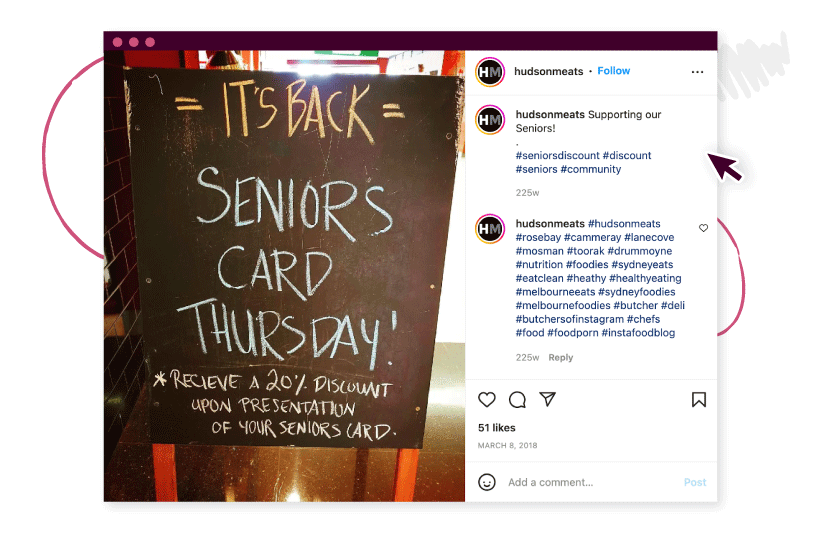 = IT'S BACK =
SENIORS
CARD
THURSDAY!
* RECIEVE A 20% DISCOUNT
UPON PRESENTATION
OF YOUR SENIORS CARD.
HM
hudsonmeats • Follow
HM
hudsonmeats Supporting our
Seniors!
.
#seniorsdiscount #discount
#seniors #community
225w
HM
hudsonmeats #hudsonmeats
#rosebay #cammeray #lanecove
#mosman #toorak #drummoyne
#nutrition #foodies #sydneyeats
#eatclean #heathy #healthyeating
#melbourneeats #sydneyfoodies
#melbournefoodies #butcher #deli
#butchersofinstagram #chefs
#food #foodporn #instafoodblog
225w Reply
51 likes
MARCH 8, 2018
Add a comment...
Post